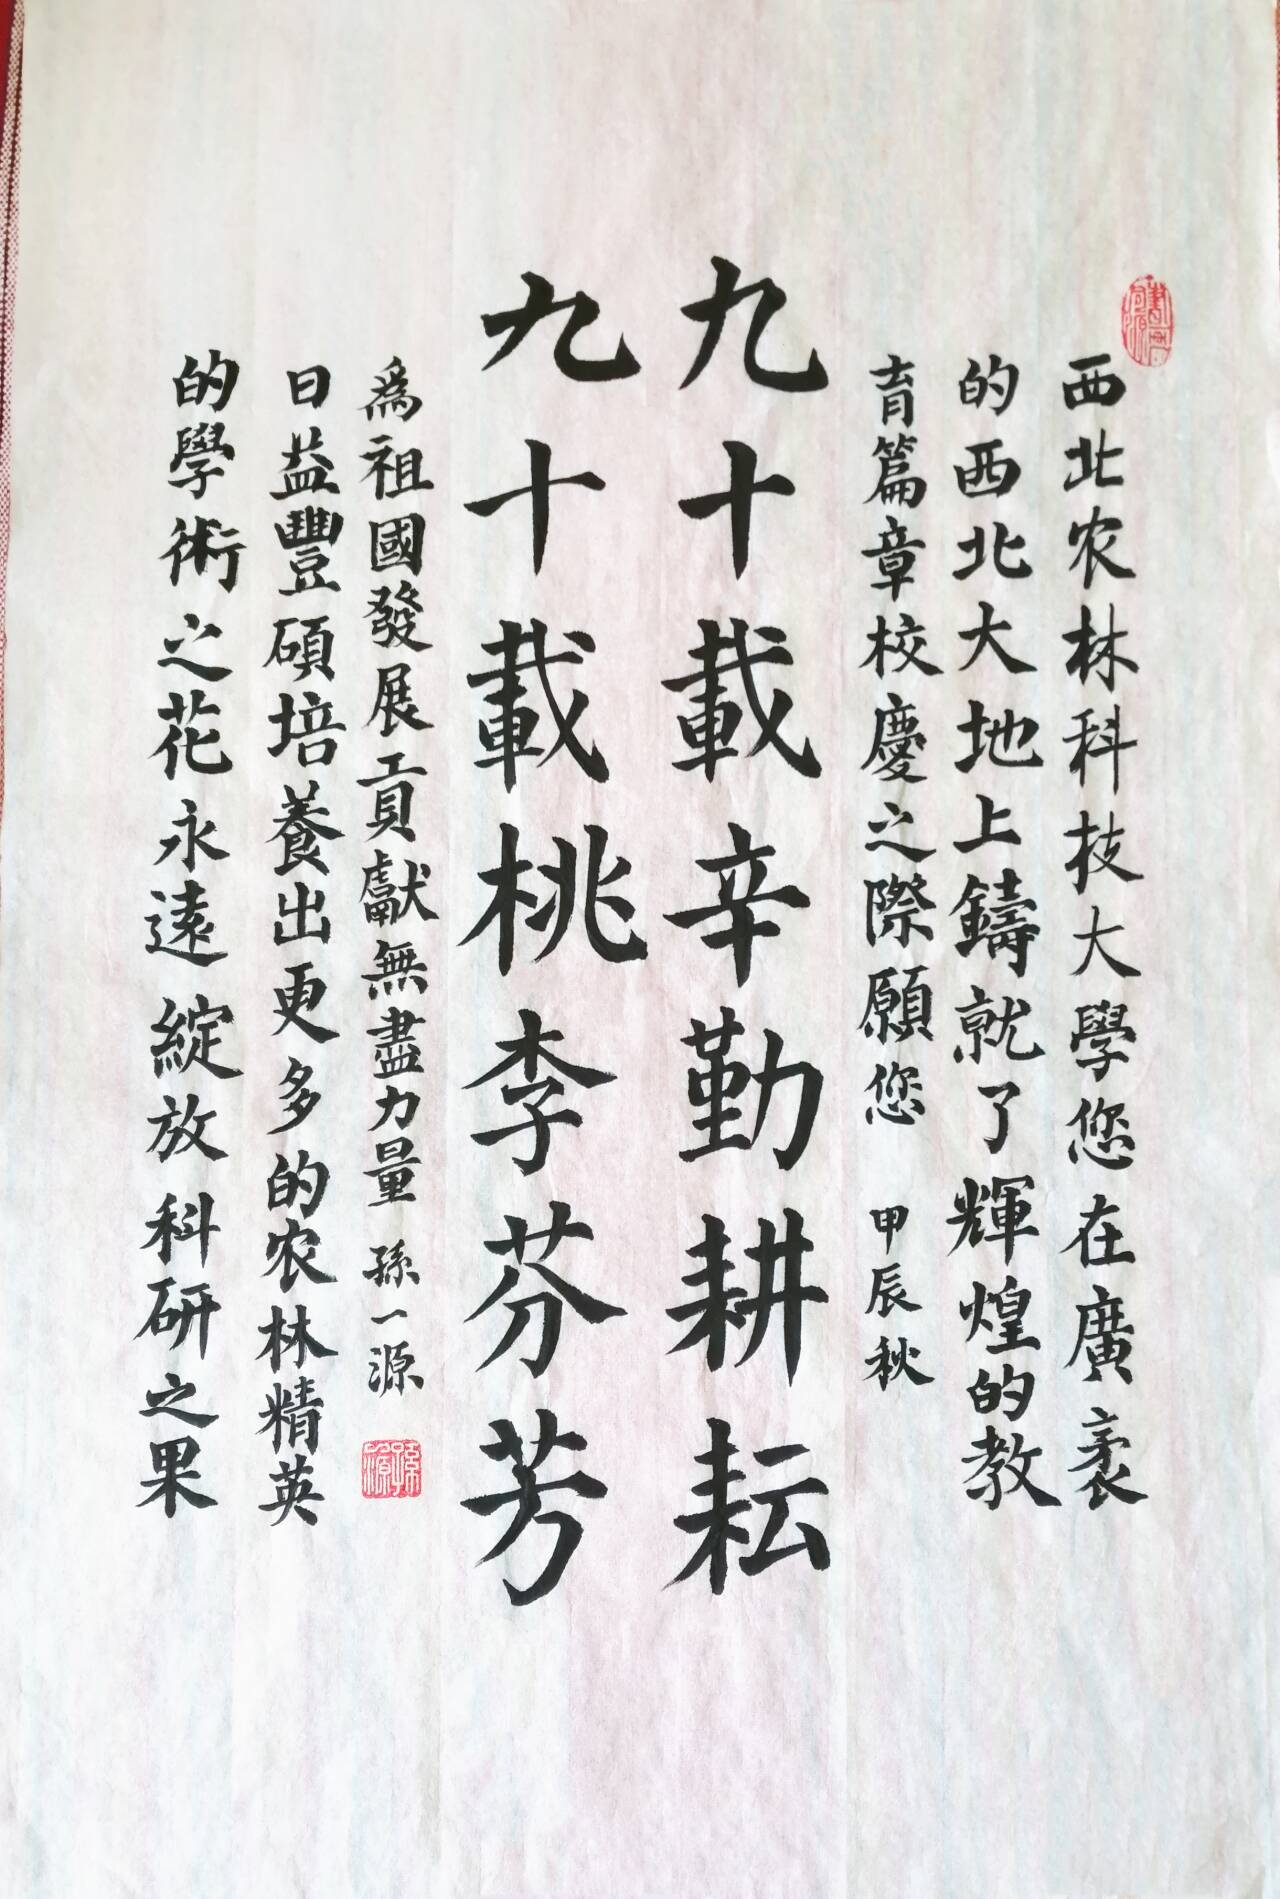 西北农林科技大學您在廣袤
的西北大地上鑄就了輝煌的教
育篇章校慶之際願您 甲辰秋
九十載辛勤耕耘
九十載桃李芬芳
爲祖國發展貢獻無盡力量 孫一源
日益豐碩培養出更多的农林精英
的學術之花永遠綻放科研之果